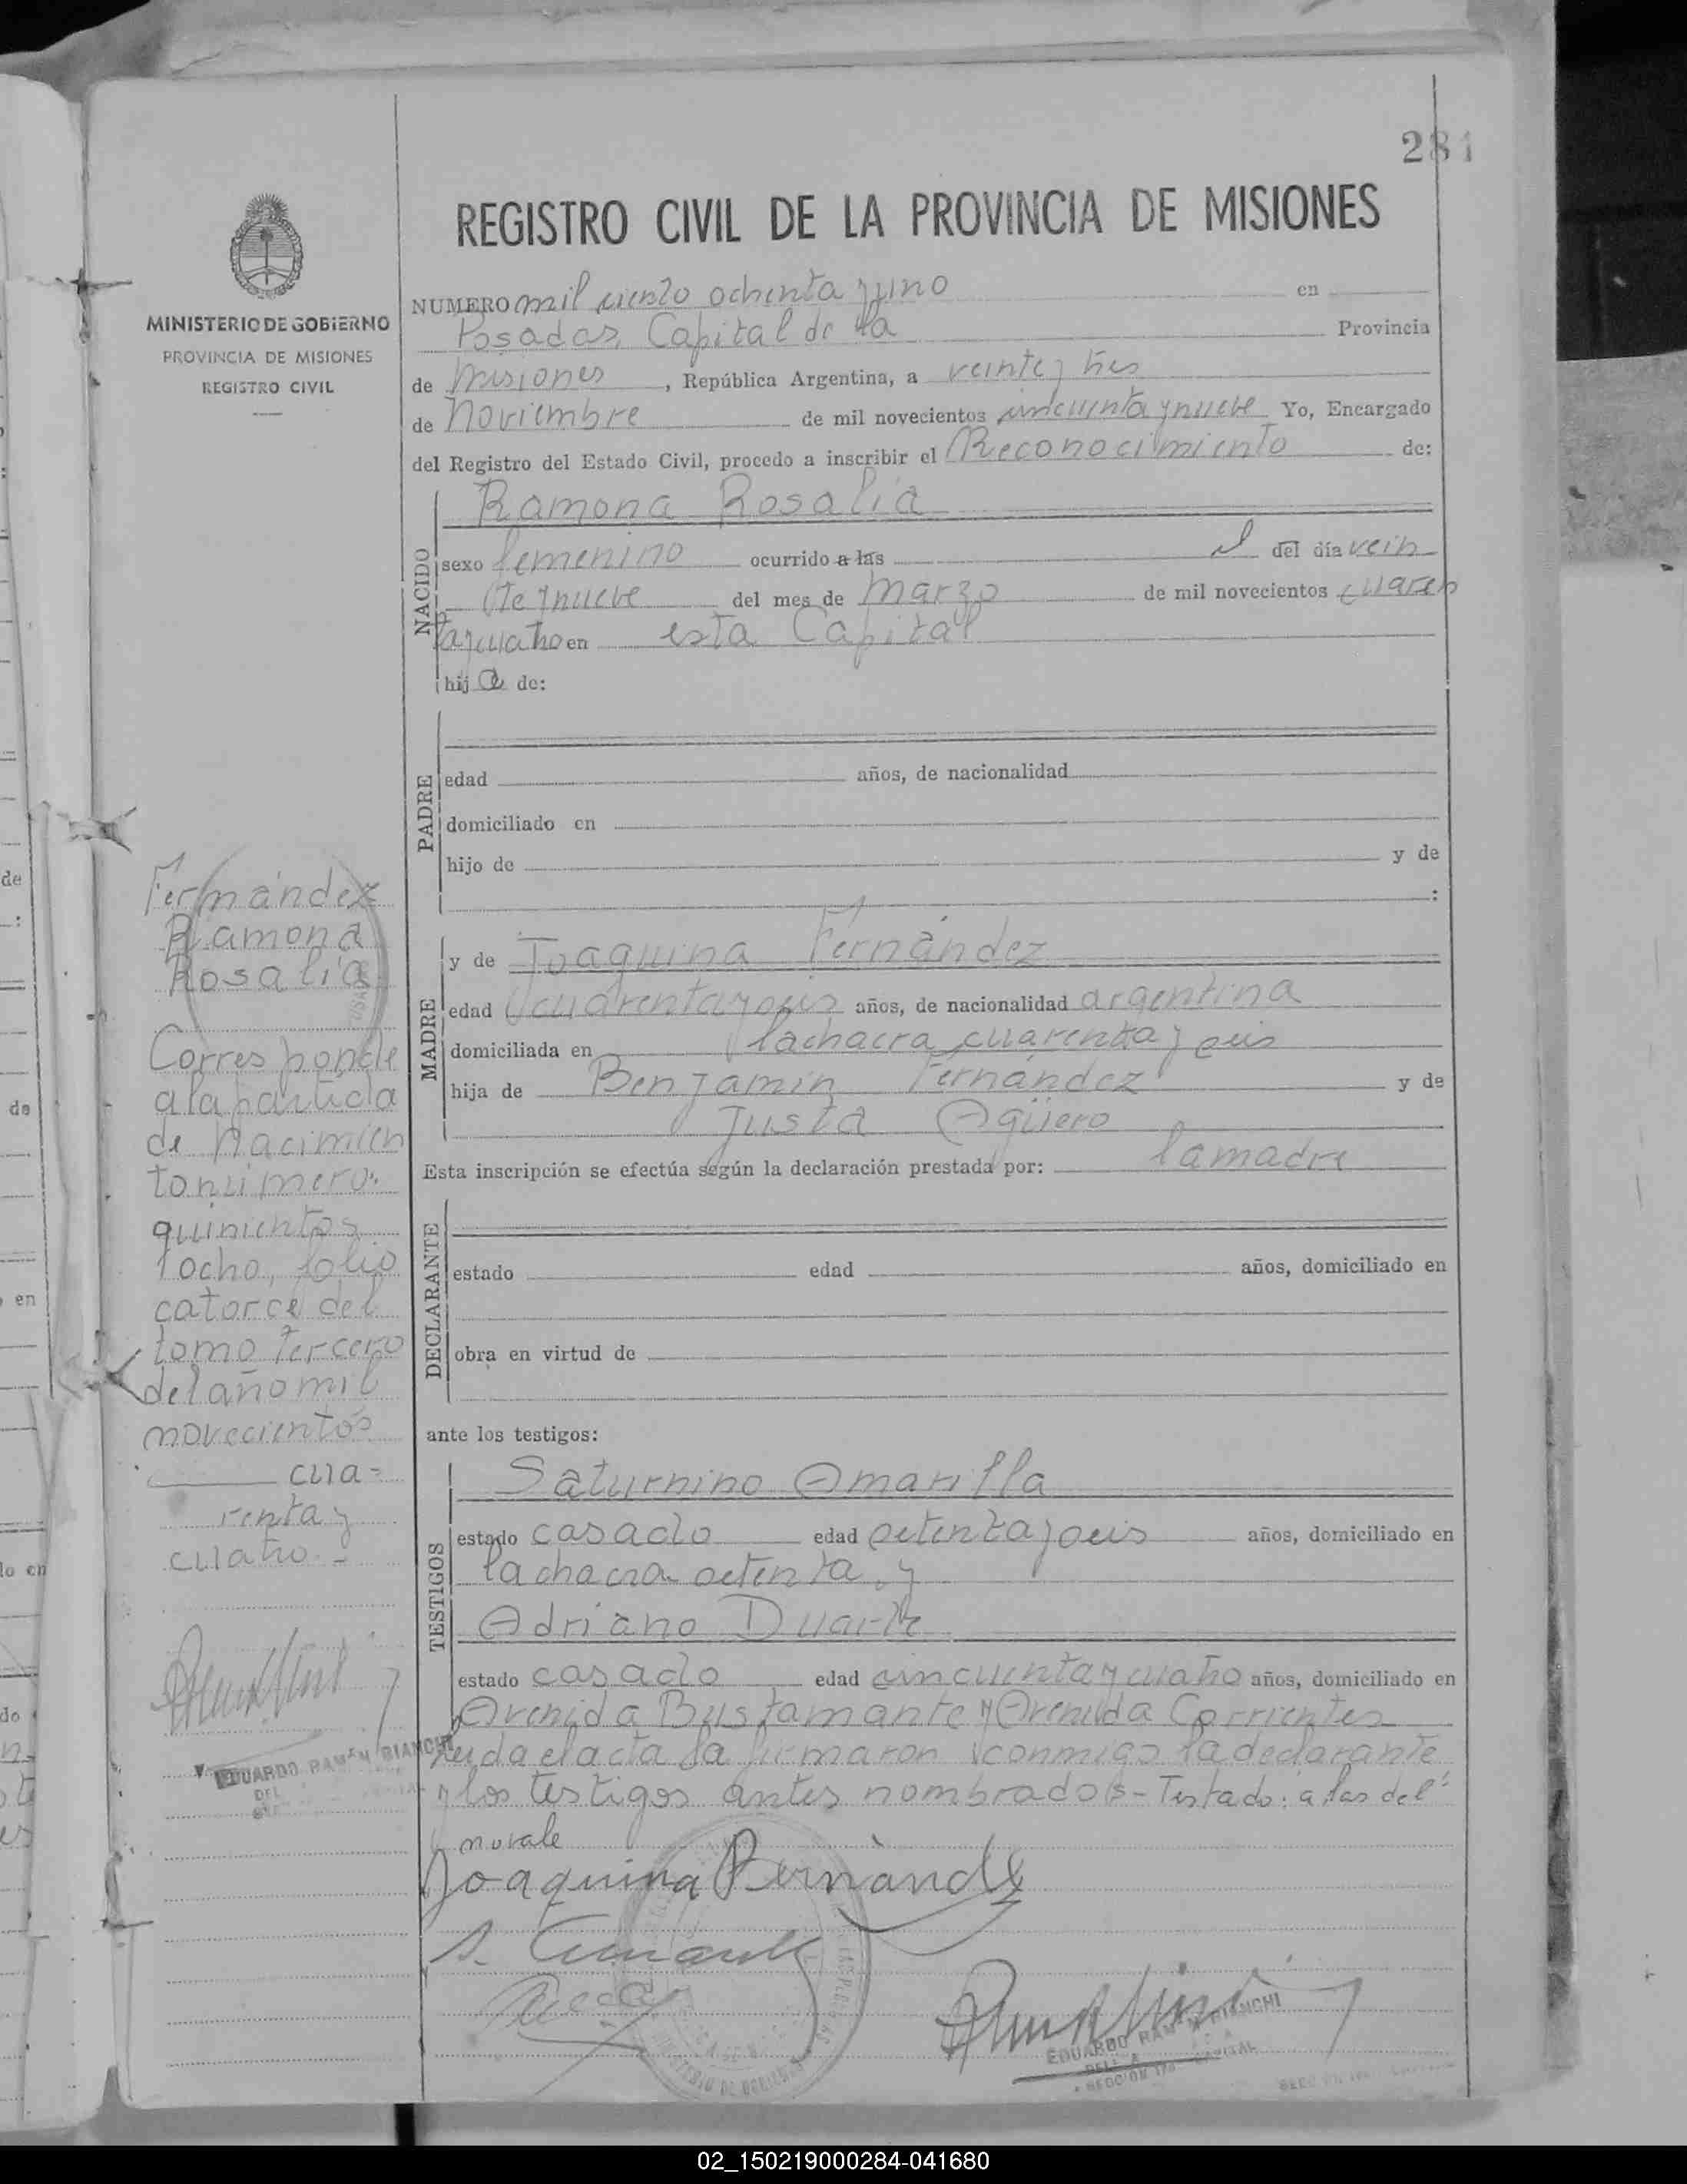 281
REGISTRO CIVIL DE LA PROVINCIA DE MISIONES
MINISTERIO DE GOBIERNO
PROVINCIA DE MISIONES
REGISTRO CIVIL
NUMERO mil ciento ochenta y uno en
Posadas, Capital de la Provincia
de Misiones, República Argentina, a veinte y tres
de Noviembre de mil novecientos cincuenta y nueve Yo, Encargado
del Registro del Estado Civil, procedo a inscribir el Reconocimiento de:
NACIDO
Ramona Rosalía
sexo femenino ocurrido a las el del día vein
te y nueve del mes de marzo de mil novecientos cuaren
ta y cuatro en esta Capital
hij a de:
PADRE
edad años, de nacionalidad
domiciliado en
hijo de y de
:
MADRE
y de Joaquina Fernández
edad cuarenta y seis años, de nacionalidad argentina
domiciliada en la chacra cuarenta y seis
hija de Benjamin Fernández y de
Justa Agüero
Esta inscripción se efectúa según la declaración prestada por: la madre
DECLARANTE
estado edad años, domiciliado en
obra en virtud de
ante los testigos:
TESTIGOS
Saturnino Amarilla
estado casado edad setenta y seis años, domiciliado en
la chacra setenta, y
Adriano Duarte
estado casado edad cincuenta y cuatro años, domiciliado en
Avenida Bustamante y Avenida Corrientes
Leida el acta la firmaron conmigo la declarante
y los testigos antes nombrados - Testado: a las del
no vale
Joaquina Fernández
EDUARDO RAMON BIANCHI
Fernández
Ramona
Rosalía
Corresponde
a la partida
de Nacimien
to número
quinientos
ocho, folio
catorce del
tomo tercero
del año mil
novecientos
cua=
renta y
cuatro.-
EDUARDO RAMON BIANCHI
02_150219000284-041680